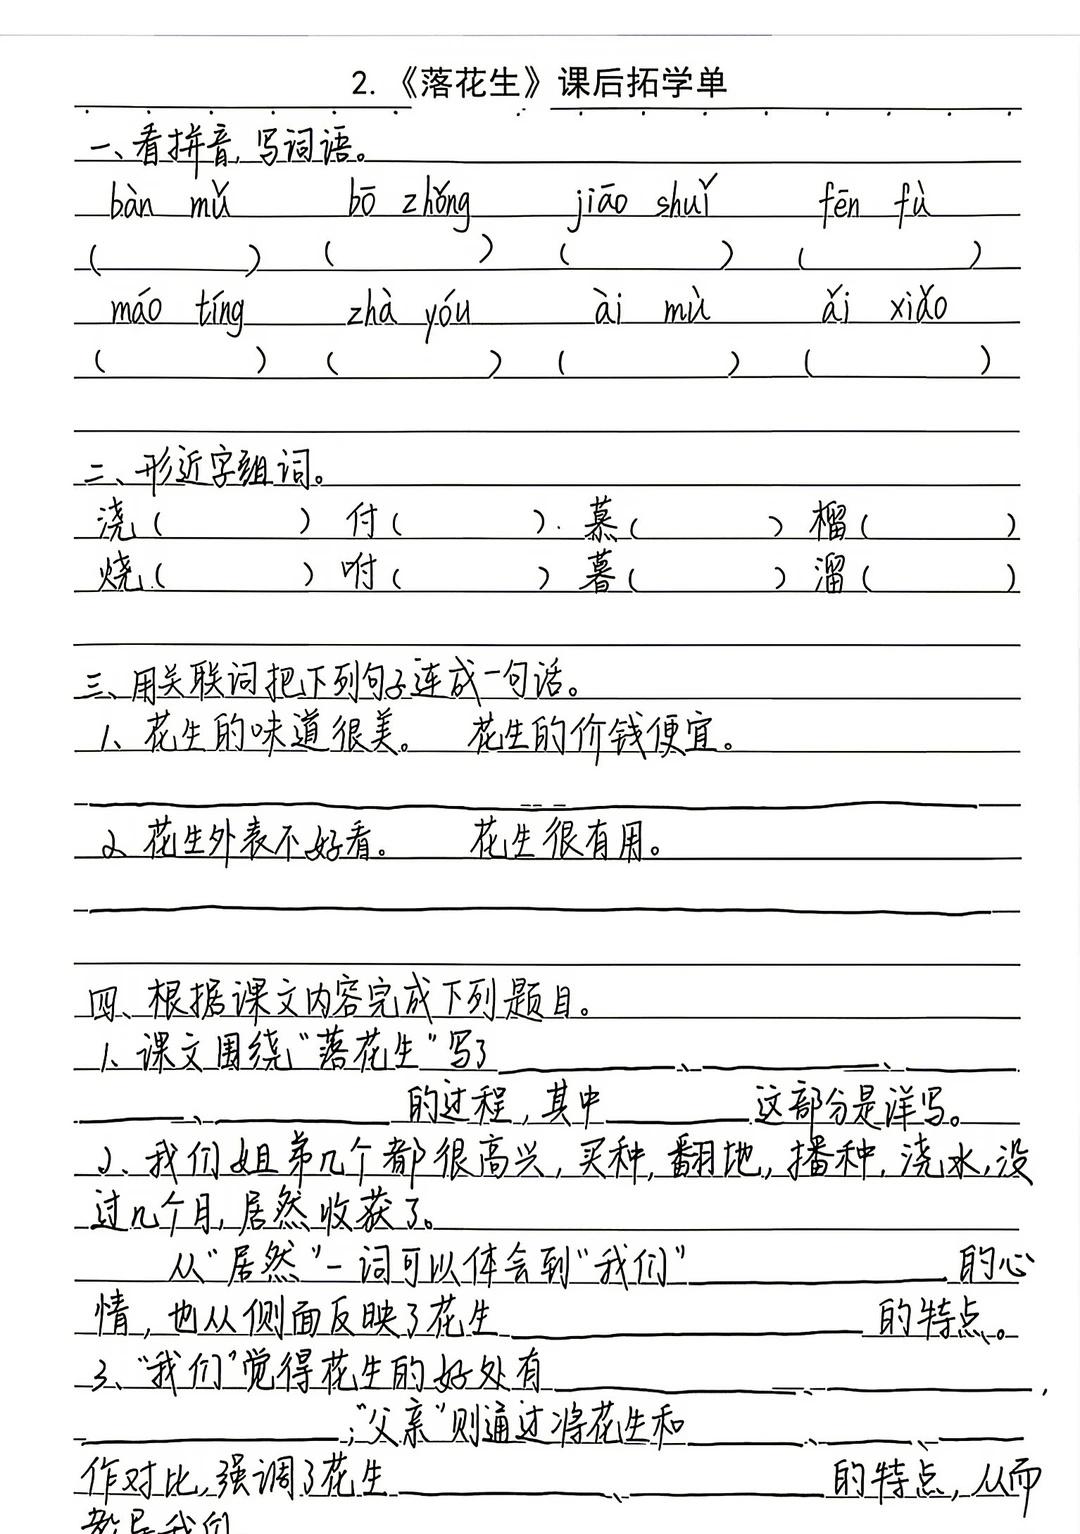 2.《落花生》课后拓学单
一、看拼音,写词语。
bàn mǔ bō zhǒng jiāo shuǐ fēn fù
( ) ( ) ( ) ( )
máo tíng zhà yóu ài mù ǎi xiǎo
( ) ( ) ( ) ( )
二、形近字组词。
浇( ) 付( ) 慕( ) 榴( )
烧( ) 咐( ) 暮( ) 溜( )
三、用关联词把下列句子连成一句话。
1、花生的味道很美。 花生的价钱便宜。
2、花生外表不好看。 花生很有用。
四、根据课文内容完成下列题目。
1、课文围绕“落花生”写了____、____、____
____、____的过程,其中____这部分是详写。
2、我们姐弟几个都很高兴,买种,翻地,播种,浇水,没
过几个月,居然收获了。
从“居然”一词可以体会到“我们”____的心
情,也从侧面反映了花生____的特点。
3、“我们”觉得花生的好处有____、____,
____;“父亲”则通过将花生和____、____、____
作对比,强调了花生____、____的特点,从而